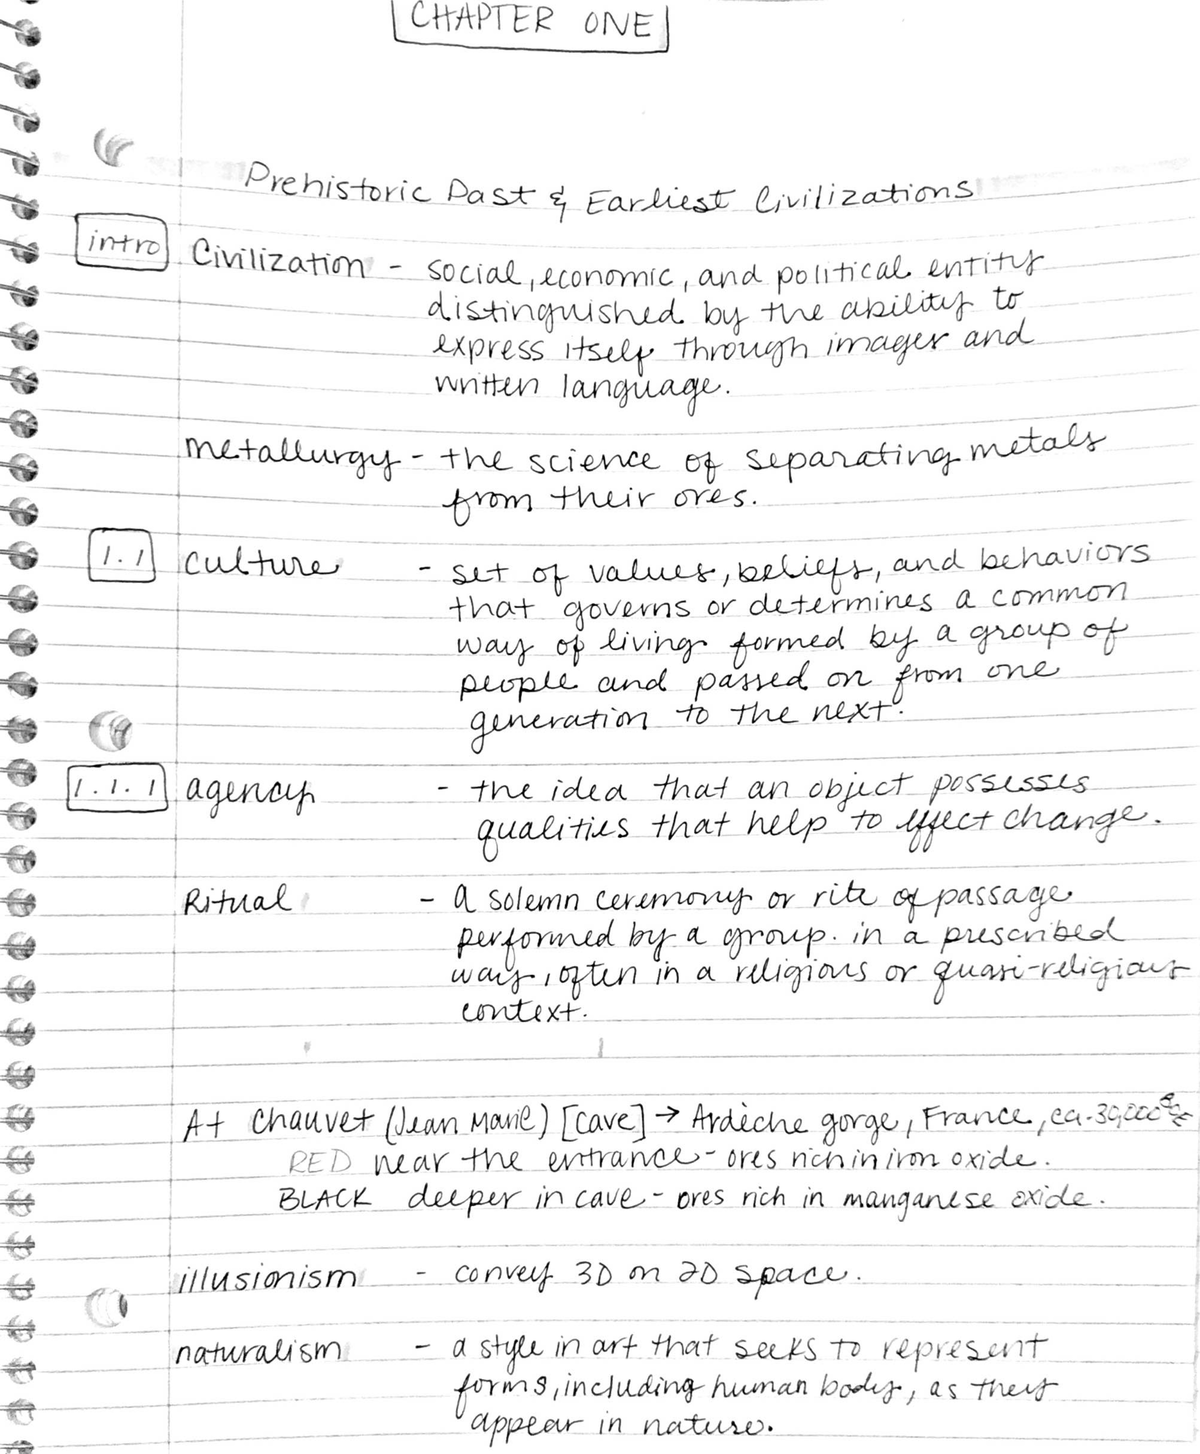 CHAPTER ONE
Prehistoric Past & Earliest Civilizations
intro Civilization - social, economic, and political entity
distinguished by the ability to
express itself through imagery and
written language.
metallurgy - the science of separating metals
from their ores.
1.1 culture - set of values, beliefs, and behaviors
that governs or determines a common
way of living formed by a group of
people and passed on from one
generation to the next.
1.1.1 agency - the idea that an object possesses
qualities that help to effect change.
Ritual - a solemn ceremony or rite of passage
performed by a group. in a prescribed
way, often in a religious or quasi-religious
context.
At Chauvet (Jean Marie) [cave] → Ardèche gorge, France, ca. 30,000 BCE
RED near the entrance - ores rich in iron oxide.
BLACK deeper in cave - ores rich in manganese oxide.
illusionism - convey 3D on 2D space.
naturalism - a style in art that seeks to represent
forms, including human body, as they
appear in nature.